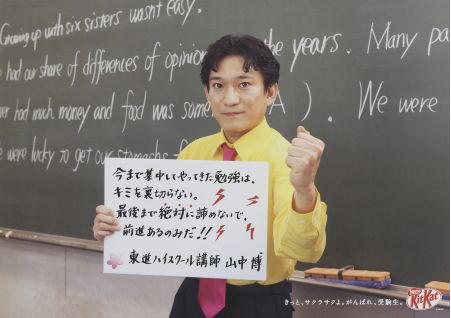 Growing up with six sisters wasn't easy.
had our share of differences of opinion
the years. Many pa
er had much money and food was some
A ). We were
were lucky to get our stomachs f
今まで集中してやってきた勉強は、
キミを裏切らない。
最後まで絶対に諦めないで、
前進あるのみだ!!
東進ハイスクール講師 山中 博
きっと、サクラサクよ。がんばれ、受験生。
KitKat